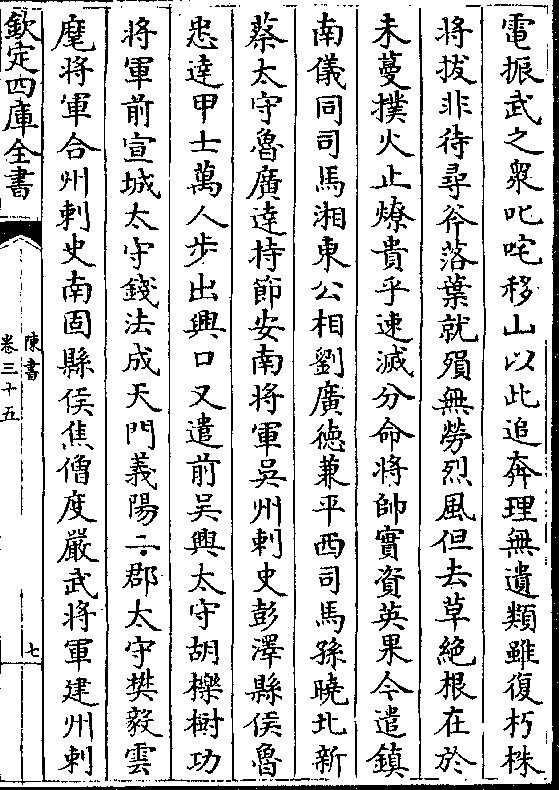 電振武之衆叱咤移山以此追奔理無遺類雖復朽株
將拔非待尋斧落葉就殞無勞烈風但去草絶根在於
未蔓撲火止燎貴乎速滅分命將帥實資英果今遣鎮
南儀同司馬湘東公相劉廣徳兼平西司馬孫曉北新
蔡太守魯廣達持節安南將軍吳州刺史彭澤縣侯魯
悉達甲士萬人步出興口又遣前吳興太守胡櫟樹功
將軍前宣城太守錢法成天門義陽二郡太守樊毅雲
麾將軍合州刺史南固縣侯焦僧度嚴武將軍建州刺
欽定四庫全書
陳書
卷三十五
七